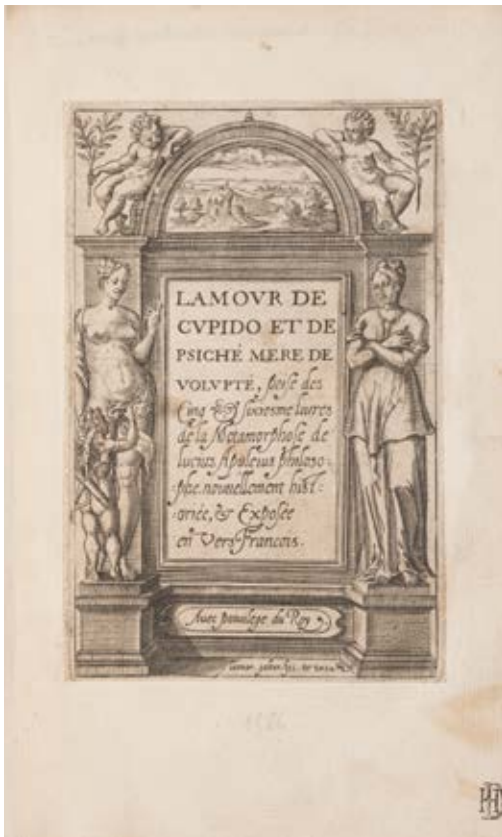 LAMOVR DE
CVPIDO ET DE
PSICHÉ MERE DE
VOLVPTÉ, prise des
Cinq & sixiesme liures
de la Metamorphose de
Lucius Apuleius philoso-
phe. nouuellement hist-
oriée, & Exposée
en Vers Francois.
Auec priuilege du Roy